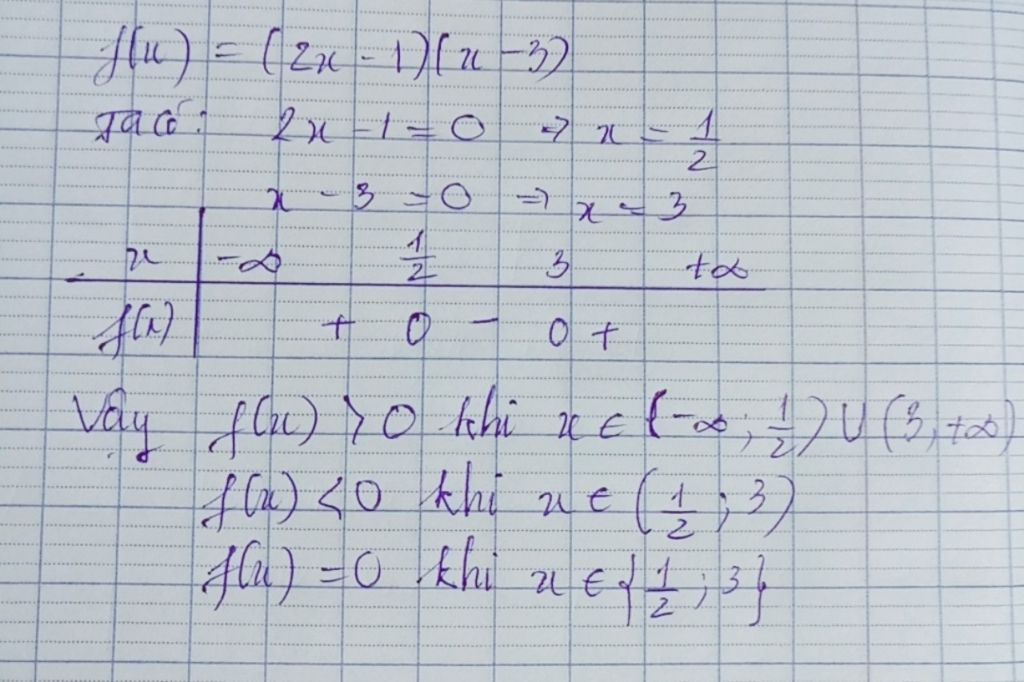 f(x) = (2x - 1)(x - 3)
Ta có: 2x - 1 = 0 => x = 1/2
x - 3 = 0 => x = 3
x -∞ 1/2 3 +∞
f(x) + 0 - 0 +
Vậy f(x) > 0 khi x ∈ (-∞; 1/2) ∪ (3, +∞)
f(x) < 0 khi x ∈ (1/2; 3)
f(x) = 0 khi x ∈ {1/2; 3}